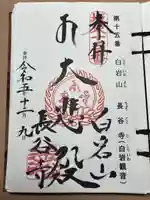 第十五番
白岩山
長谷寺(白岩観音)
奉拝
白岩山
大悲殿
長谷寺
令和五年十一月九日